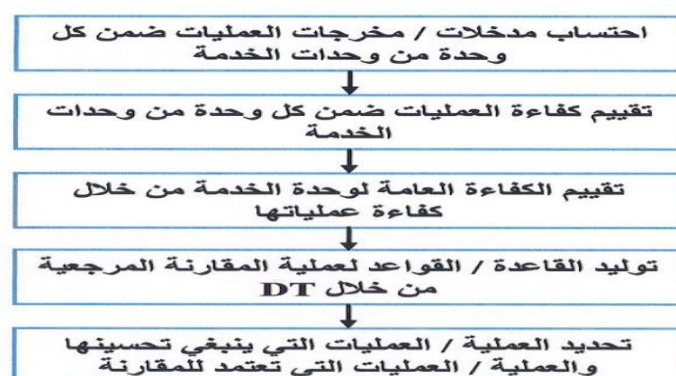 احتساب مدخلات / مخرجات العمليات ضمن كل
وحدة من وحدات الخدمة
تقييم كفاءة العمليات ضمن كل وحدة من وحدات
الخدمة
تقييم الكفاءة العامة لوحدة الخدمة من خلال
كفاءة عملياتها
توليد القاعدة / القواعد لعملية المقارنة المرجعية
من خلال DT
تحديد العملية / العمليات التي ينبغي تحسينها
والعملية / العمليات التي تعتمد للمقارنة